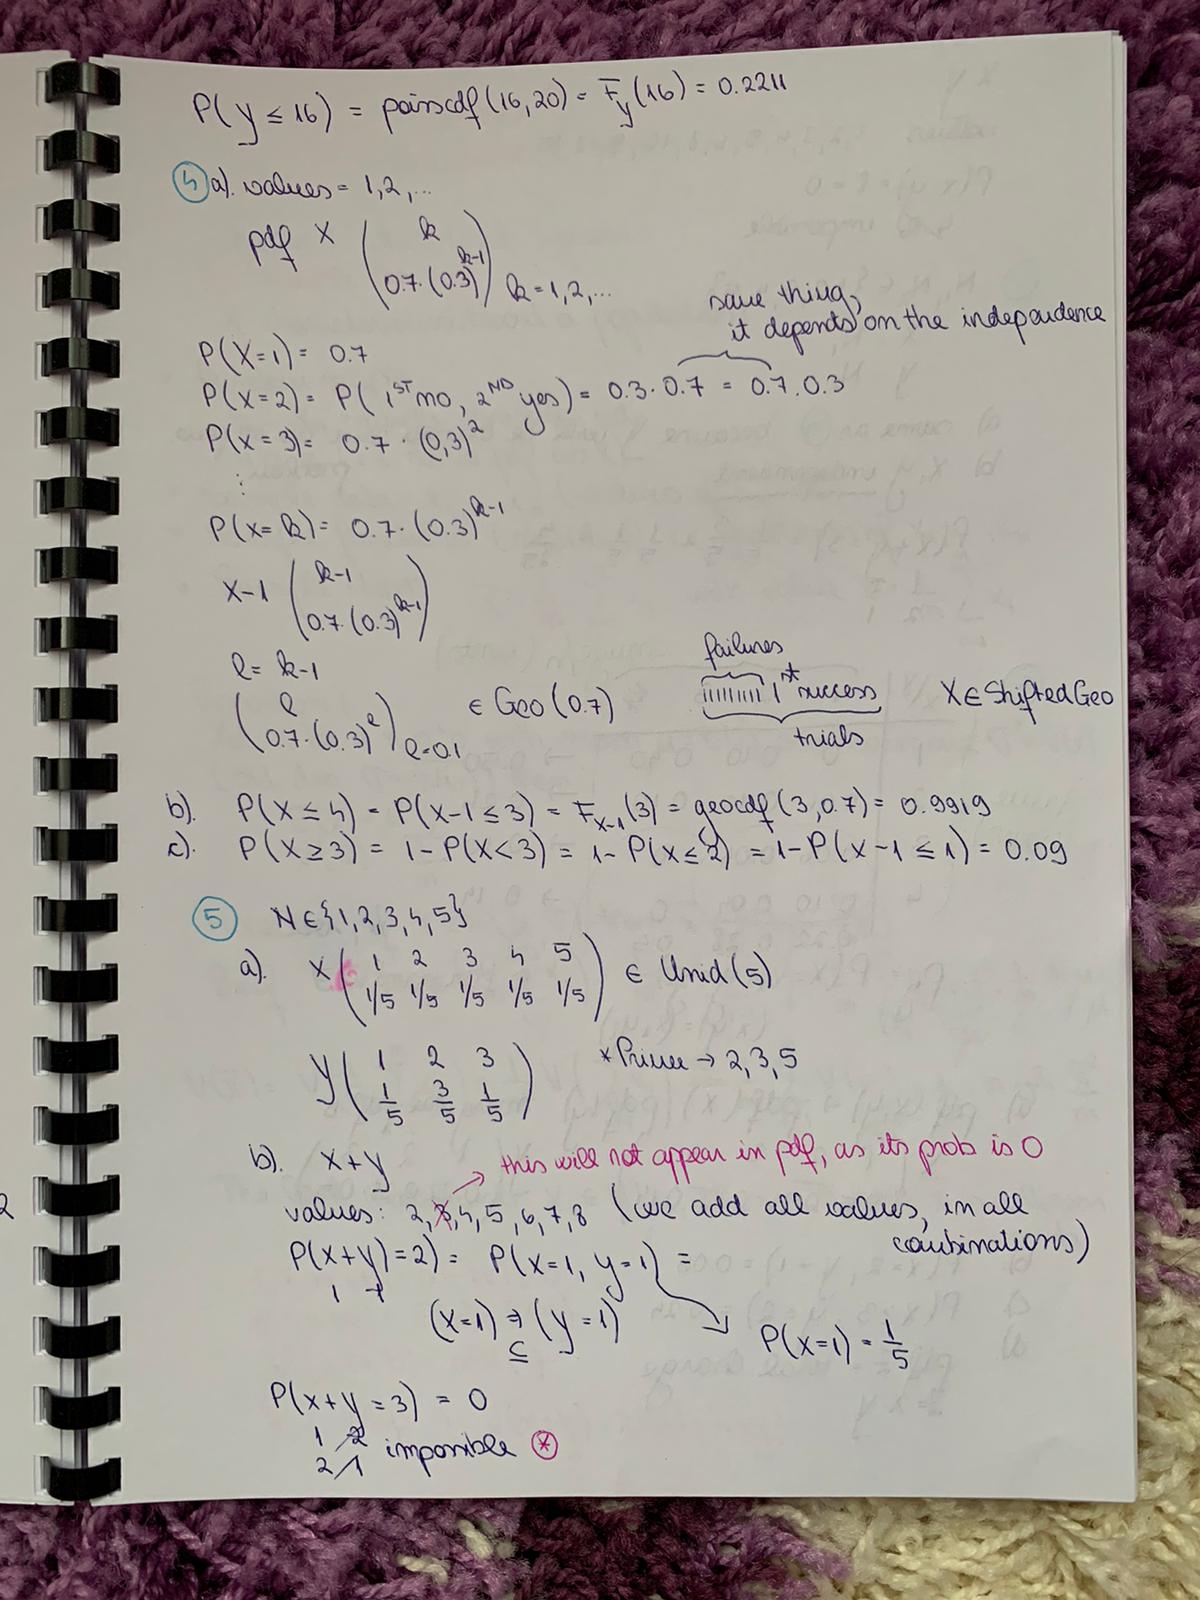 P(Y ≤ 16) = poisscdf(16,20) = F_Y(16) = 0.2211
④ a). values = 1,2,...
pdf X ( k
0.7·(0.3)^{k-1} ) k=1,2,...
same thing,
it depends on the independence
P(X=1) = 0.7
P(X=2) = P( 1ST no, 2ND yes) = 0.3·0.7 = 0.7·0.3
P(X=3) = 0.7 · (0,3)^2
⋮
P(X=k) = 0.7·(0.3)^{k-1}
X-1 ( k-1
0.7·(0.3)^{k-1} )
l = k-1
( l
0.7·(0.3)^l ) l=0,1
∈ Geo (0.7)
failures
||||||||| 1st success
trials
X ∈ Shifted Geo
b). P(X ≤ 4) = P(X-1 ≤ 3) = F_{X-1}(3) = geocdf(3,0.7) = 0.9919
c). P(X ≥ 3) = 1-P(X<3) = 1-P(X≤2) = 1-P(X-1 ≤ 1) = 0.09
⑤ N ∈ {1,2,3,4,5}
a). X ( 1 2 3 4 5
1/5 1/5 1/5 1/5 1/5 ) ∈ Unid (5)
Y ( 1 2 3
1/5 3/5 1/5 )
* Prime → 2,3,5
b). X+Y
→ this will not appear in pdf, as its prob is 0
values: 2,3,4,5,6,7,8 (we add all values, in all
combinations)
P(X+Y)=2) = P(X=1, Y=1) =
1 1
(X=1) ⇒ (Y=1)
⊆
P(X=1) = 1/5
P(X+Y=3) = 0
1 2
2 1 imposible ⊛
2